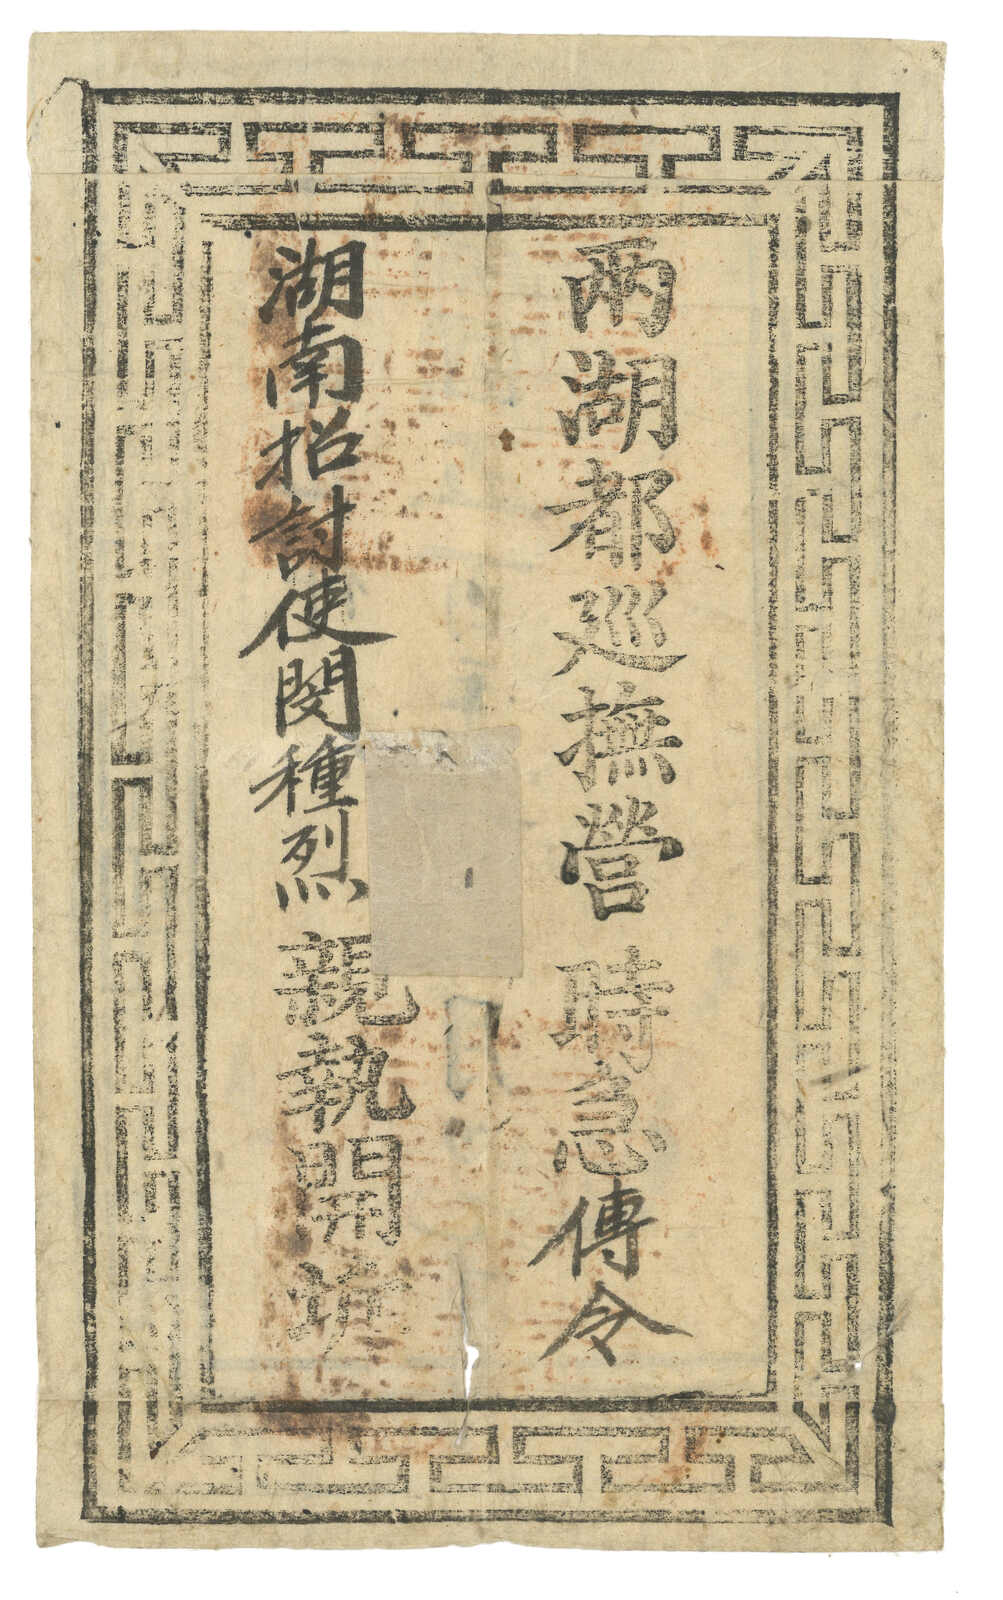 兩湖都巡撫營 時急傳令
湖南招討使閔種烈 親執開坼